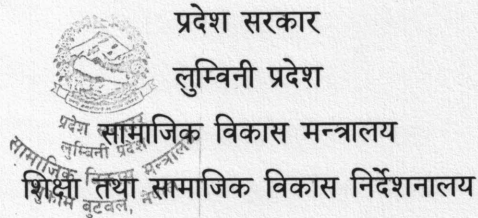 प्रदेश सरकार
लुम्विनी प्रदेश
सामाजिक विकास मन्त्रालय
शिक्षा तथा सामाजिक विकास निर्देशनालय
प्रदेश सरकार
लुम्बिनी प्रदेश
सामाजिक विकास मन्त्रालय
मुकाम बुटवल, नेपाल